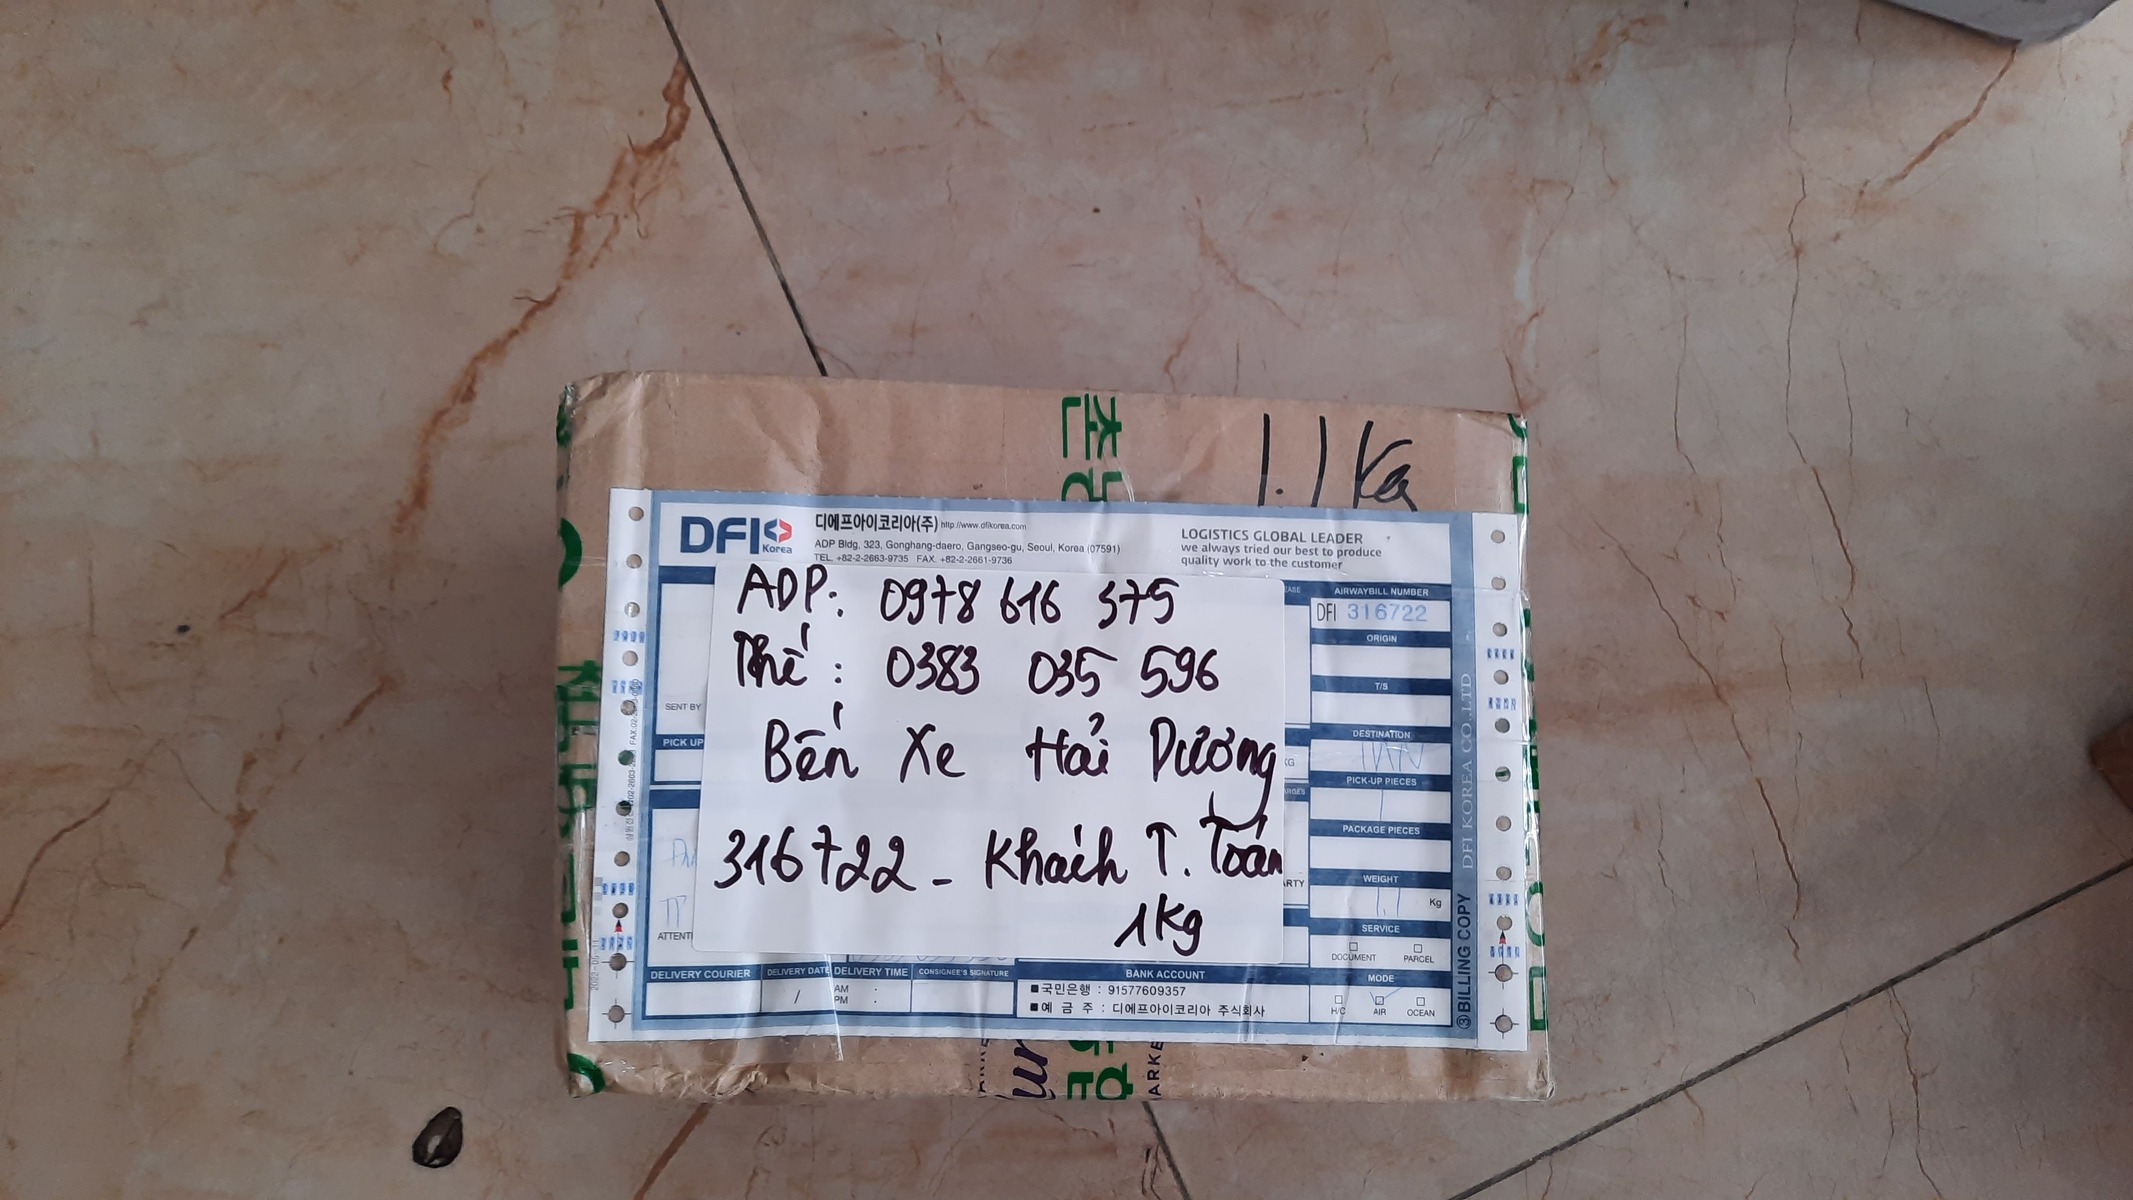 1.1 Kg
DFI Korea
디에프아이코리아(주) http://www.dfikorea.com
ADP Bldg, 323, Gonghang-daero, Gangseo-gu, Seoul, Korea (07591)
TEL. +82-2-2663-9735 FAX. +82-2-2661-9736
LOGISTICS GLOBAL LEADER
we always tried our best to produce
quality work to the customer
ADP: 0978 616 375
Thế : 0383 035 596
Bến Xe Hải Dương
316722 - Khách T. Toán
1Kg
AIRWAYBILL NUMBER
DFI 316722
ORIGIN
T/S
DESTINATION
PICK-UP PIECES
1
PACKAGE PIECES
WEIGHT
1.1 Kg
SERVICE
DOCUMENT PARCEL
MODE
H/C AIR OCEAN
SENT BY
PICK UP
DELIVERY COURIER DELIVERY DATE DELIVERY TIME CONSIGNEE'S SIGNATURE
/ AM :
PM :
BANK ACCOUNT
■국민은행 : 91577609357
■예 금 주 : 디에프아이코리아 주식회사
③BILLING COPY DFI KOREA CO.,LTD